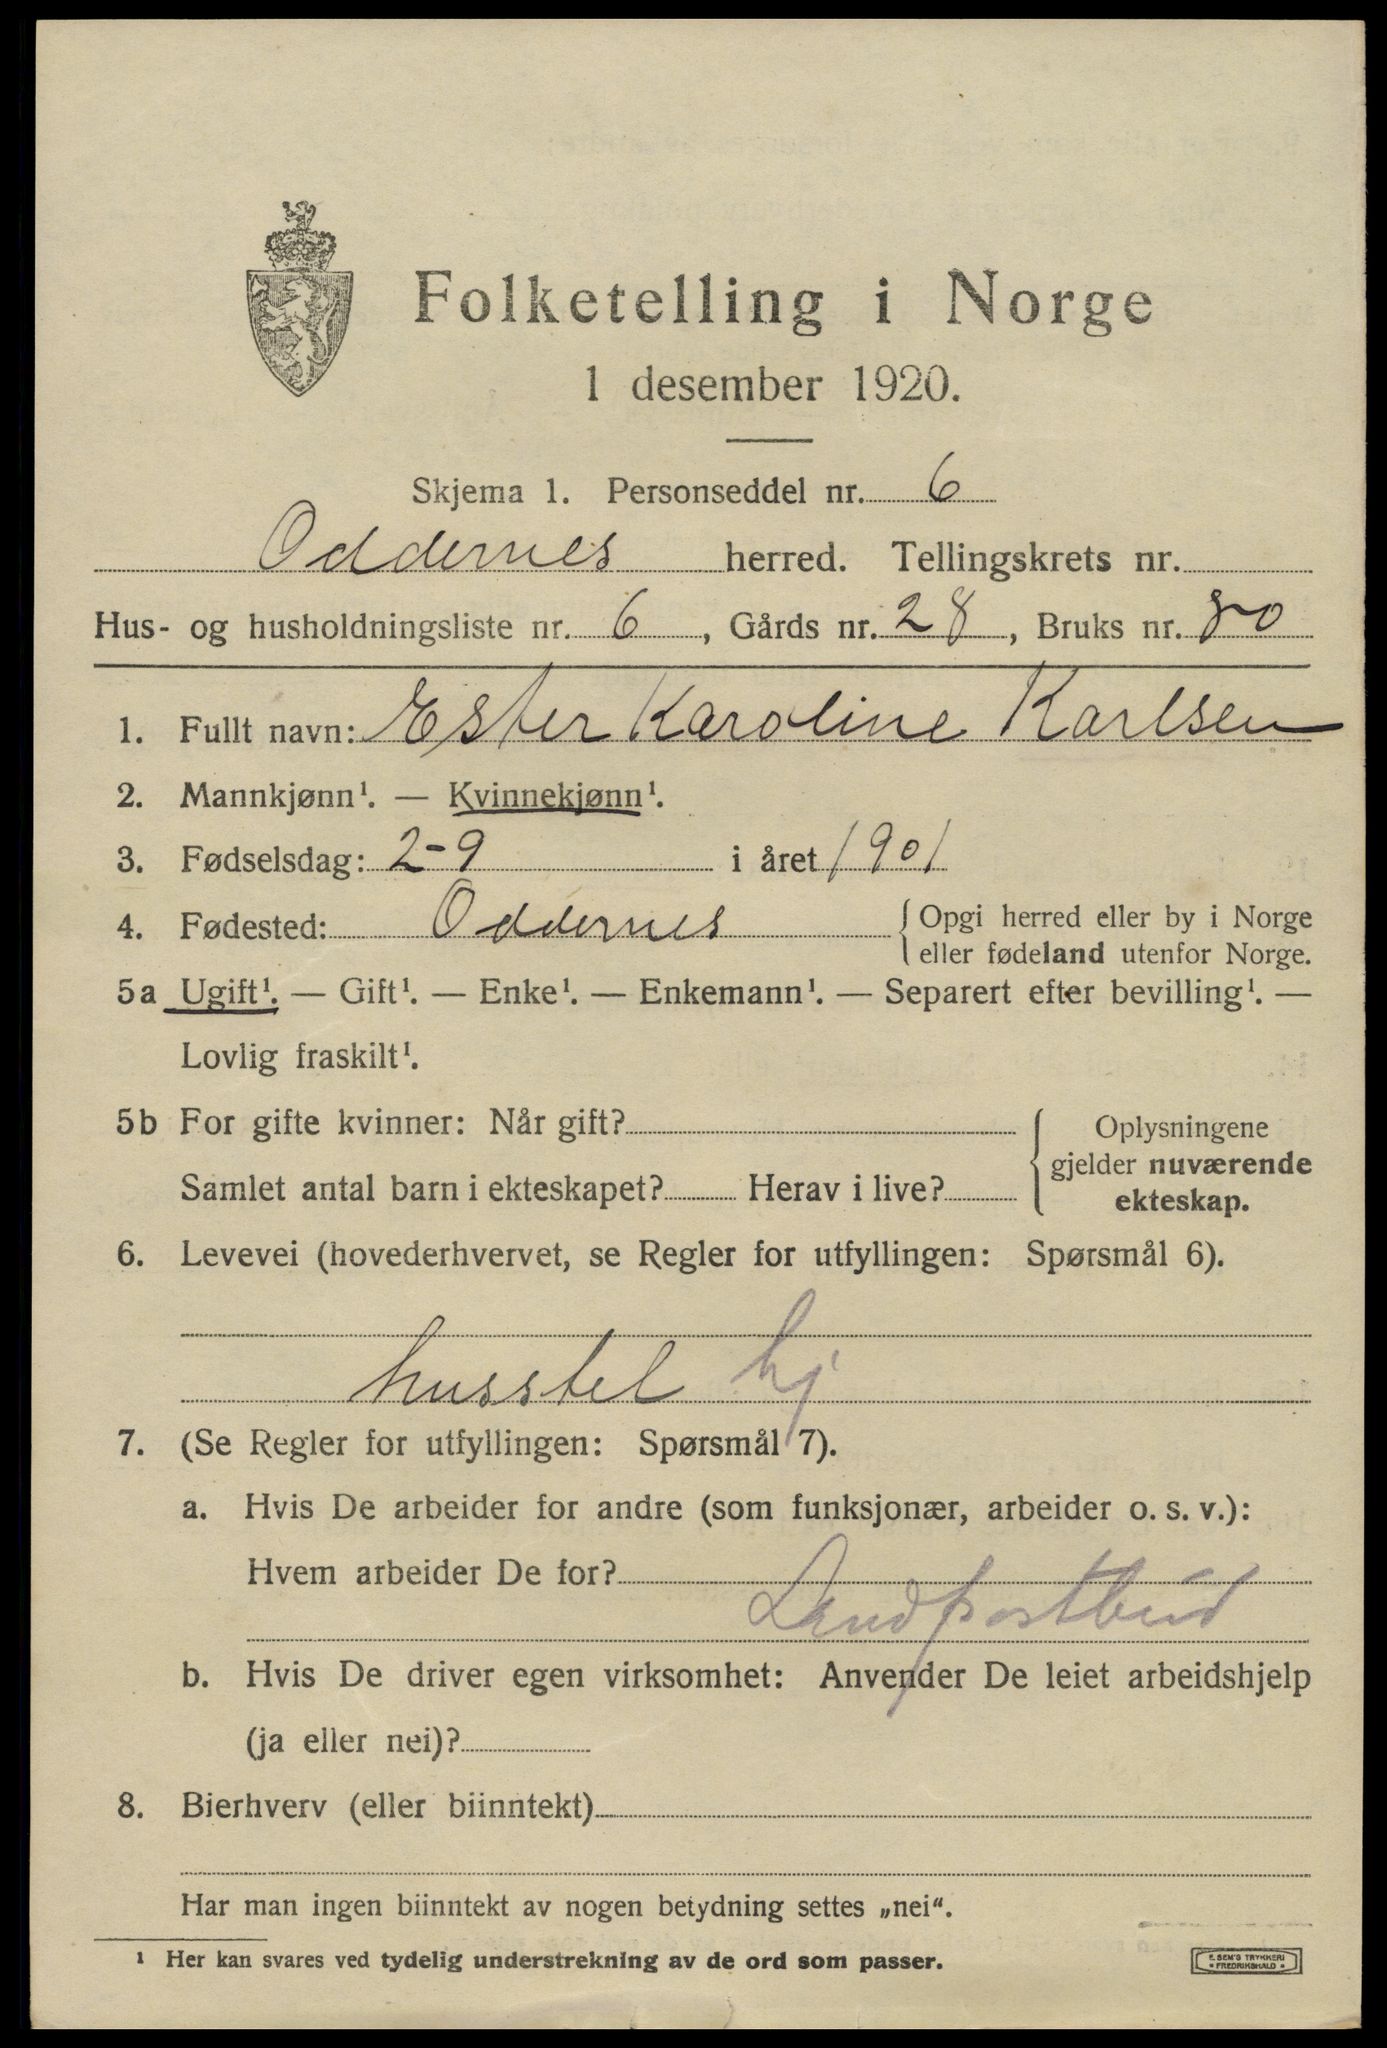 Folketelling i Norge
1 desember 1920.
Skjema 1. Personseddel nr. 6
Oddernes herred. Tellingskrets nr.
Hus- og husholdningsliste nr. 6, Gårds nr. 28, Bruks nr. 80
1. Fullt navn: Ester Karoline Karlsen
2. Mannkjønn¹. — Kvinnekjønn¹.
3. Fødselsdag: 2-9 i året 1901
4. Fødested: Oddernes { Opgi herred eller by i Norge
eller fødeland utenfor Norge.
5a Ugift¹. — Gift¹. — Enke¹. — Enkemann¹. — Separert efter bevilling¹. —
Lovlig fraskilt¹.
5b For gifte kvinner: Når gift?
Samlet antal barn i ekteskapet? Herav i live?
{ Oplysningene
gjelder nuværende
ekteskap.
6. Levevei (hovederhvervet, se Regler for utfyllingen: Spørsmål 6).
husstel hj
7. (Se Regler for utfyllingen: Spørsmål 7).
a. Hvis De arbeider for andre (som funksjonær, arbeider o. s. v.):
Hvem arbeider De for?
Landpostbud
b. Hvis De driver egen virksomhet: Anvender De leiet arbeidshjelp
(ja eller nei)?
8. Bierhverv (eller biinntekt)
Har man ingen biinntekt av nogen betydning settes „nei“.
¹ Her kan svares ved tydelig understrekning av de ord som passer.
E. SEM'S TRYKKERI
• FREDRIKSHALD •